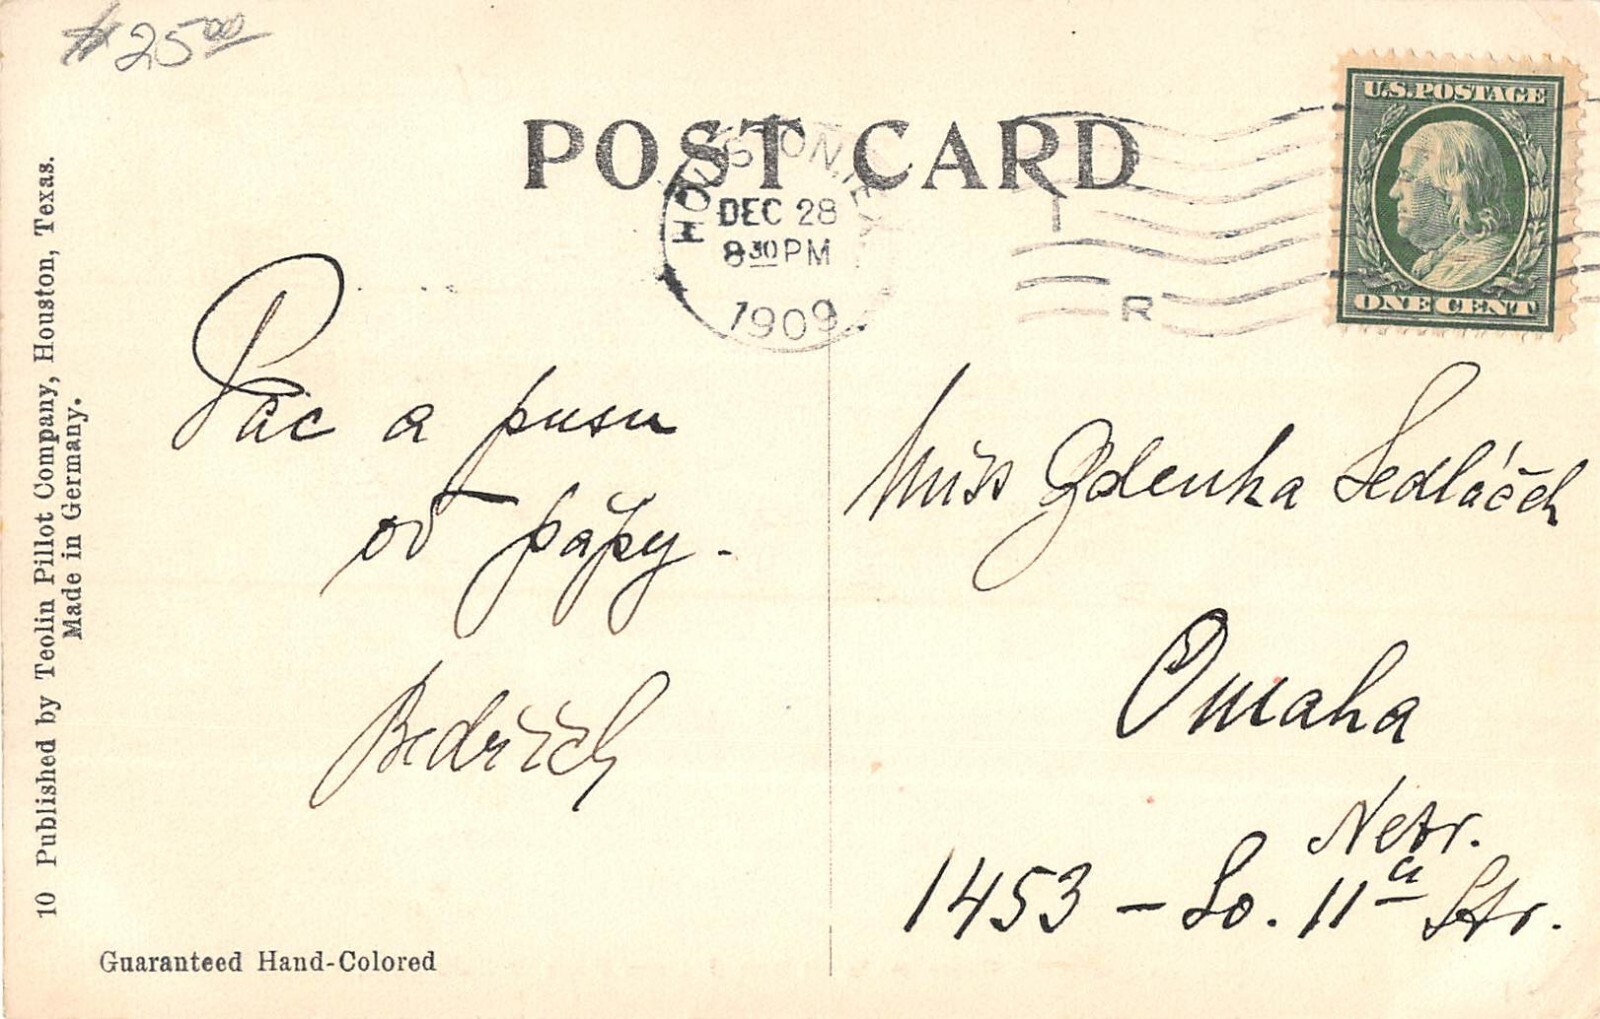 #25.00
POST CARD
HOUSTON, TEX.
DEC 28
8 30 PM
1909
R
U.S. POSTAGE
ONE CENT
Pac a pusu
od pápy.
Bedřich
Miss Zdenka Sedláček
Omaha
Nebr.
1453 - So. 11th Str.
10 Published by Teolin Pillot Company, Houston, Texas.
Made in Germany.
Guaranteed Hand-Colored